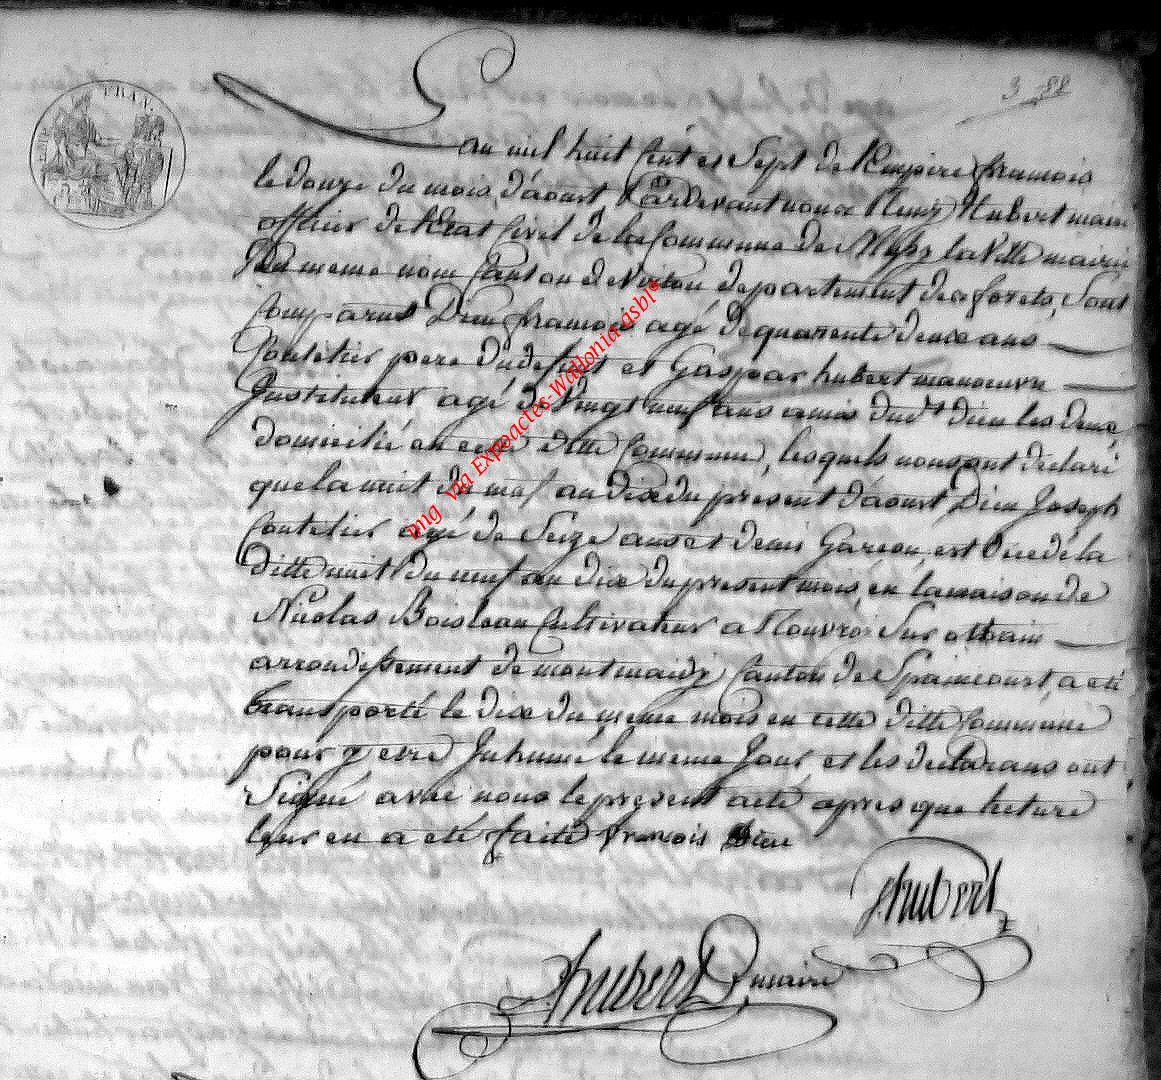 3 88
L'an mil huit Cent et Sept de l'Empire francois
le douze du mois d'aoust Pardevant nous Remy Hubert maire
officier de l'Etat Civil de la Commune de la Ville mairie
du meme nom Canton de Virton departement des forets, Sont
Comparus Dieu francois agé de quarente deux ans
Coutelier pere du defunt et Gaspar hubert manoeuvre
Instituteur agé de Vingt neuf ans amis dudt dieu les deux
domicilié en cette ditte Commune, lesquels nous ont declaré
que la nuit du neuf au dix du présent d'aoust Dieu Joseph
Coutelier agé de Seize ans et demis Garcon, est décédé la
ditte nuit du neuf au dix du présent mois, en la maison de
Nicolas Boisleau Cultivateur a Rouvroi Sur othain
arrondissement de montmaidy Canton de Spaincourt, a été
transporté le dix du meme mois en cette ditte Commune
pour y etre Inhumé le meme Jour et les declarans ont
Signé avec nous le présent acte apres que lecture
leur en a été faite francois Dieu
hubert
hubert maire
img via Expoactes-Wallonia asbl®